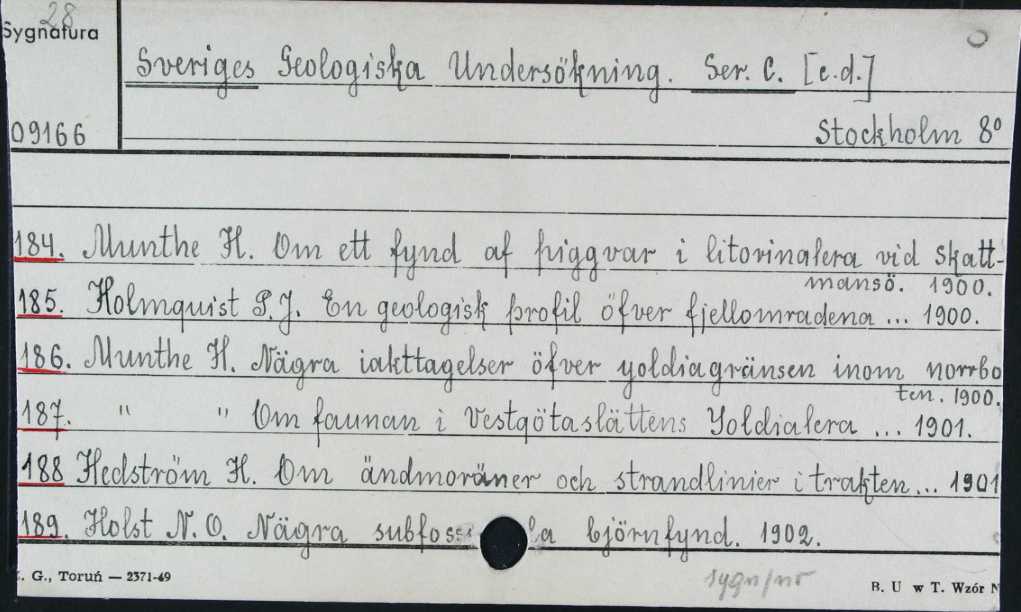 28
Sygnatura
Sveriges Geologiska Undersökning. Ser. C. [c.d.]
09166
Stockholm 8°
184. Munthe H. Om ett fynd af piggvar i litorinalera vid Skatt-
mansö. 1900.
185. Holmquist P. J. En geologisk profil öfver fjellomradena ... 1900.
186. Munthe H. Nägra iakttagelser öfver yoldiagränsen inom norrbo
ten. 1900.
187. " " Om faunan i Vestgötaslättens Yoldialera ... 1901.
188 Hedström H. Om ändmoräner och strandlinier i trakten... 1901
189. Holst N. O. Nägra björnfynd. 1902.
G., Toruń — 2371-49
B. U w T. Wzór N